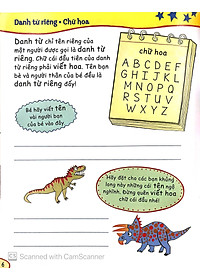 Danh từ riêng • Chữ hoa
Danh từ chỉ tên riêng của
một người được gọi là danh từ
riêng. Chữ cái đầu tiên của danh
từ riêng phải viết hoa. Tên bạn
bè và người thân của bé đều là
danh từ riêng đấy!
chữ hoa
A B C D E
F G H I J K
L M N O P
Q R S T U
V W X Y Z
Bé hãy viết tên
vài người bạn
của bé vào đây.
Hãy đặt cho các bạn khủng
long này những cái tên ngộ
nghĩnh, đừng quên viết hoa
chữ cái đầu nhé!
CS Scanned with CamScanner
6